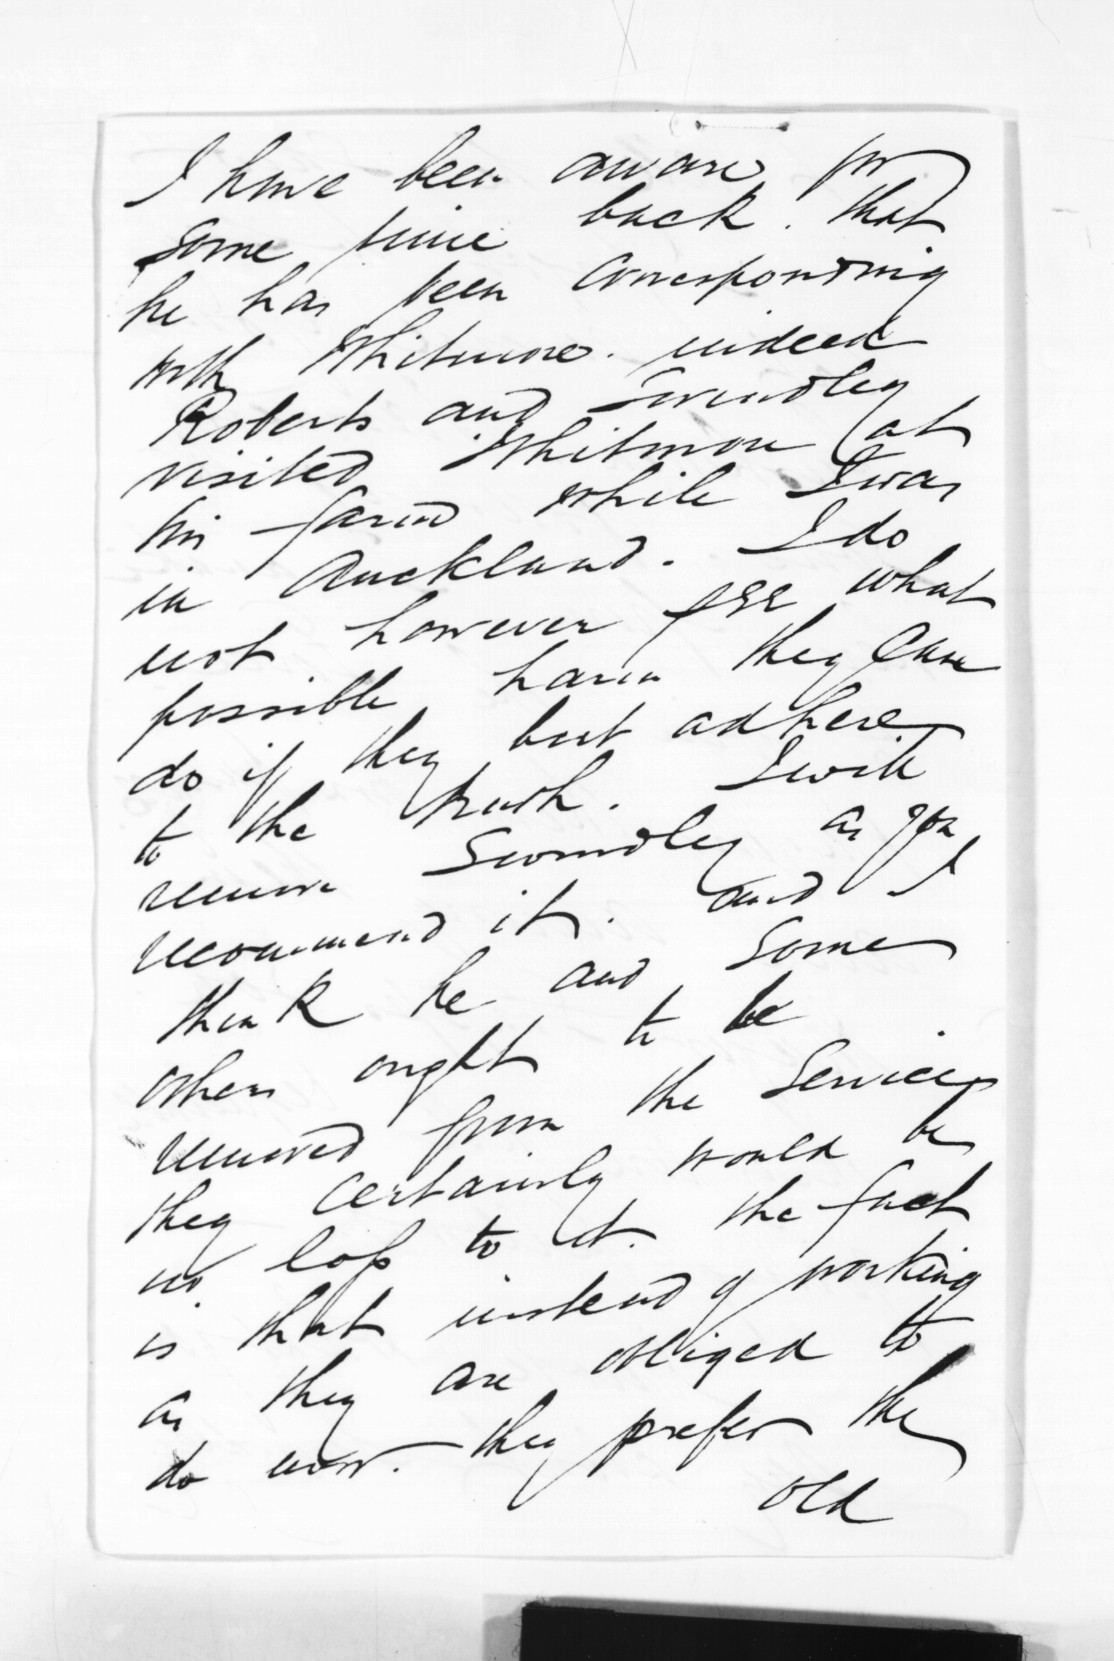 I have been aware for
some time back. that
he has been corresponding
with Whitmore. indeed
Roberts and Swindley
visited Whitmore at
his farm while I was
in Auckland. I do
not however see what
possible harm they can
do if they but adhere
to the truth. I will
remove Swindley as you
recommend it. and I
think he and some
others ought to be
removed from the Service.
they certainly would be
no loss to it. the fact
is that instead of working
as they are obliged to
do now. they prefer the
old